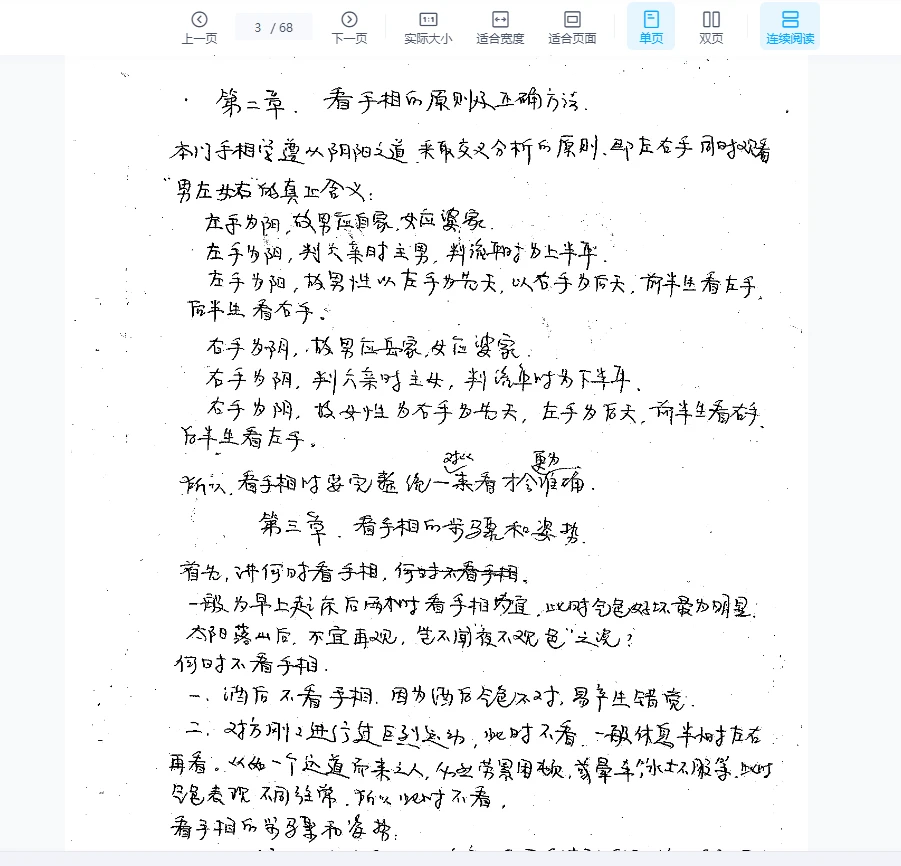 上一页 3 / 68 下一页 1:1 实际大小 适合宽度 适合页面 单页 双页 连续阅读
第二章. 看手相的原则及正确方法.
本门手相学遵从阴阳之道,采取交叉分析的原则.即左右手同时观看
"男左女右"的真正含义:
左手为阳,故男应自家,女应婆家.
左手为阳,判六亲时主男,判流年时为上半年.
左手为阳,故男性以左手为先天,以右手为后天,前半生看左手,
后半生看右手。
右手为阴,故男应岳家,女应婆家.
右手为阴,判六亲时主女,判流年时为下半年.
右手为阴,故女性为右手为先天,左手为后天,前半生看右手.
后半生看左手。
对以 更为
所以,看手相时要完整统一来看才会准确.
第三章.看手相的步骤和姿势.
首先,讲何时看手相,何时不看手相.
一般为早上起床后两小时看手相为宜,此时气色好坏最为明显.
太阳落山后,不宜再观,岂不闻"夜不观色"之说?
何时不看手相.
一、酒后不看手相.因为酒后气色不对,易产生错觉.
二、对方刚刚进行过巨烈运动,此时不看.一般休息半小时左右
再看。从如一个远道而来之人,从之劳累困顿,或晕车、水土不服等.此时
气色表现不同往常.所以此时不看.
看手相的步骤和姿势: